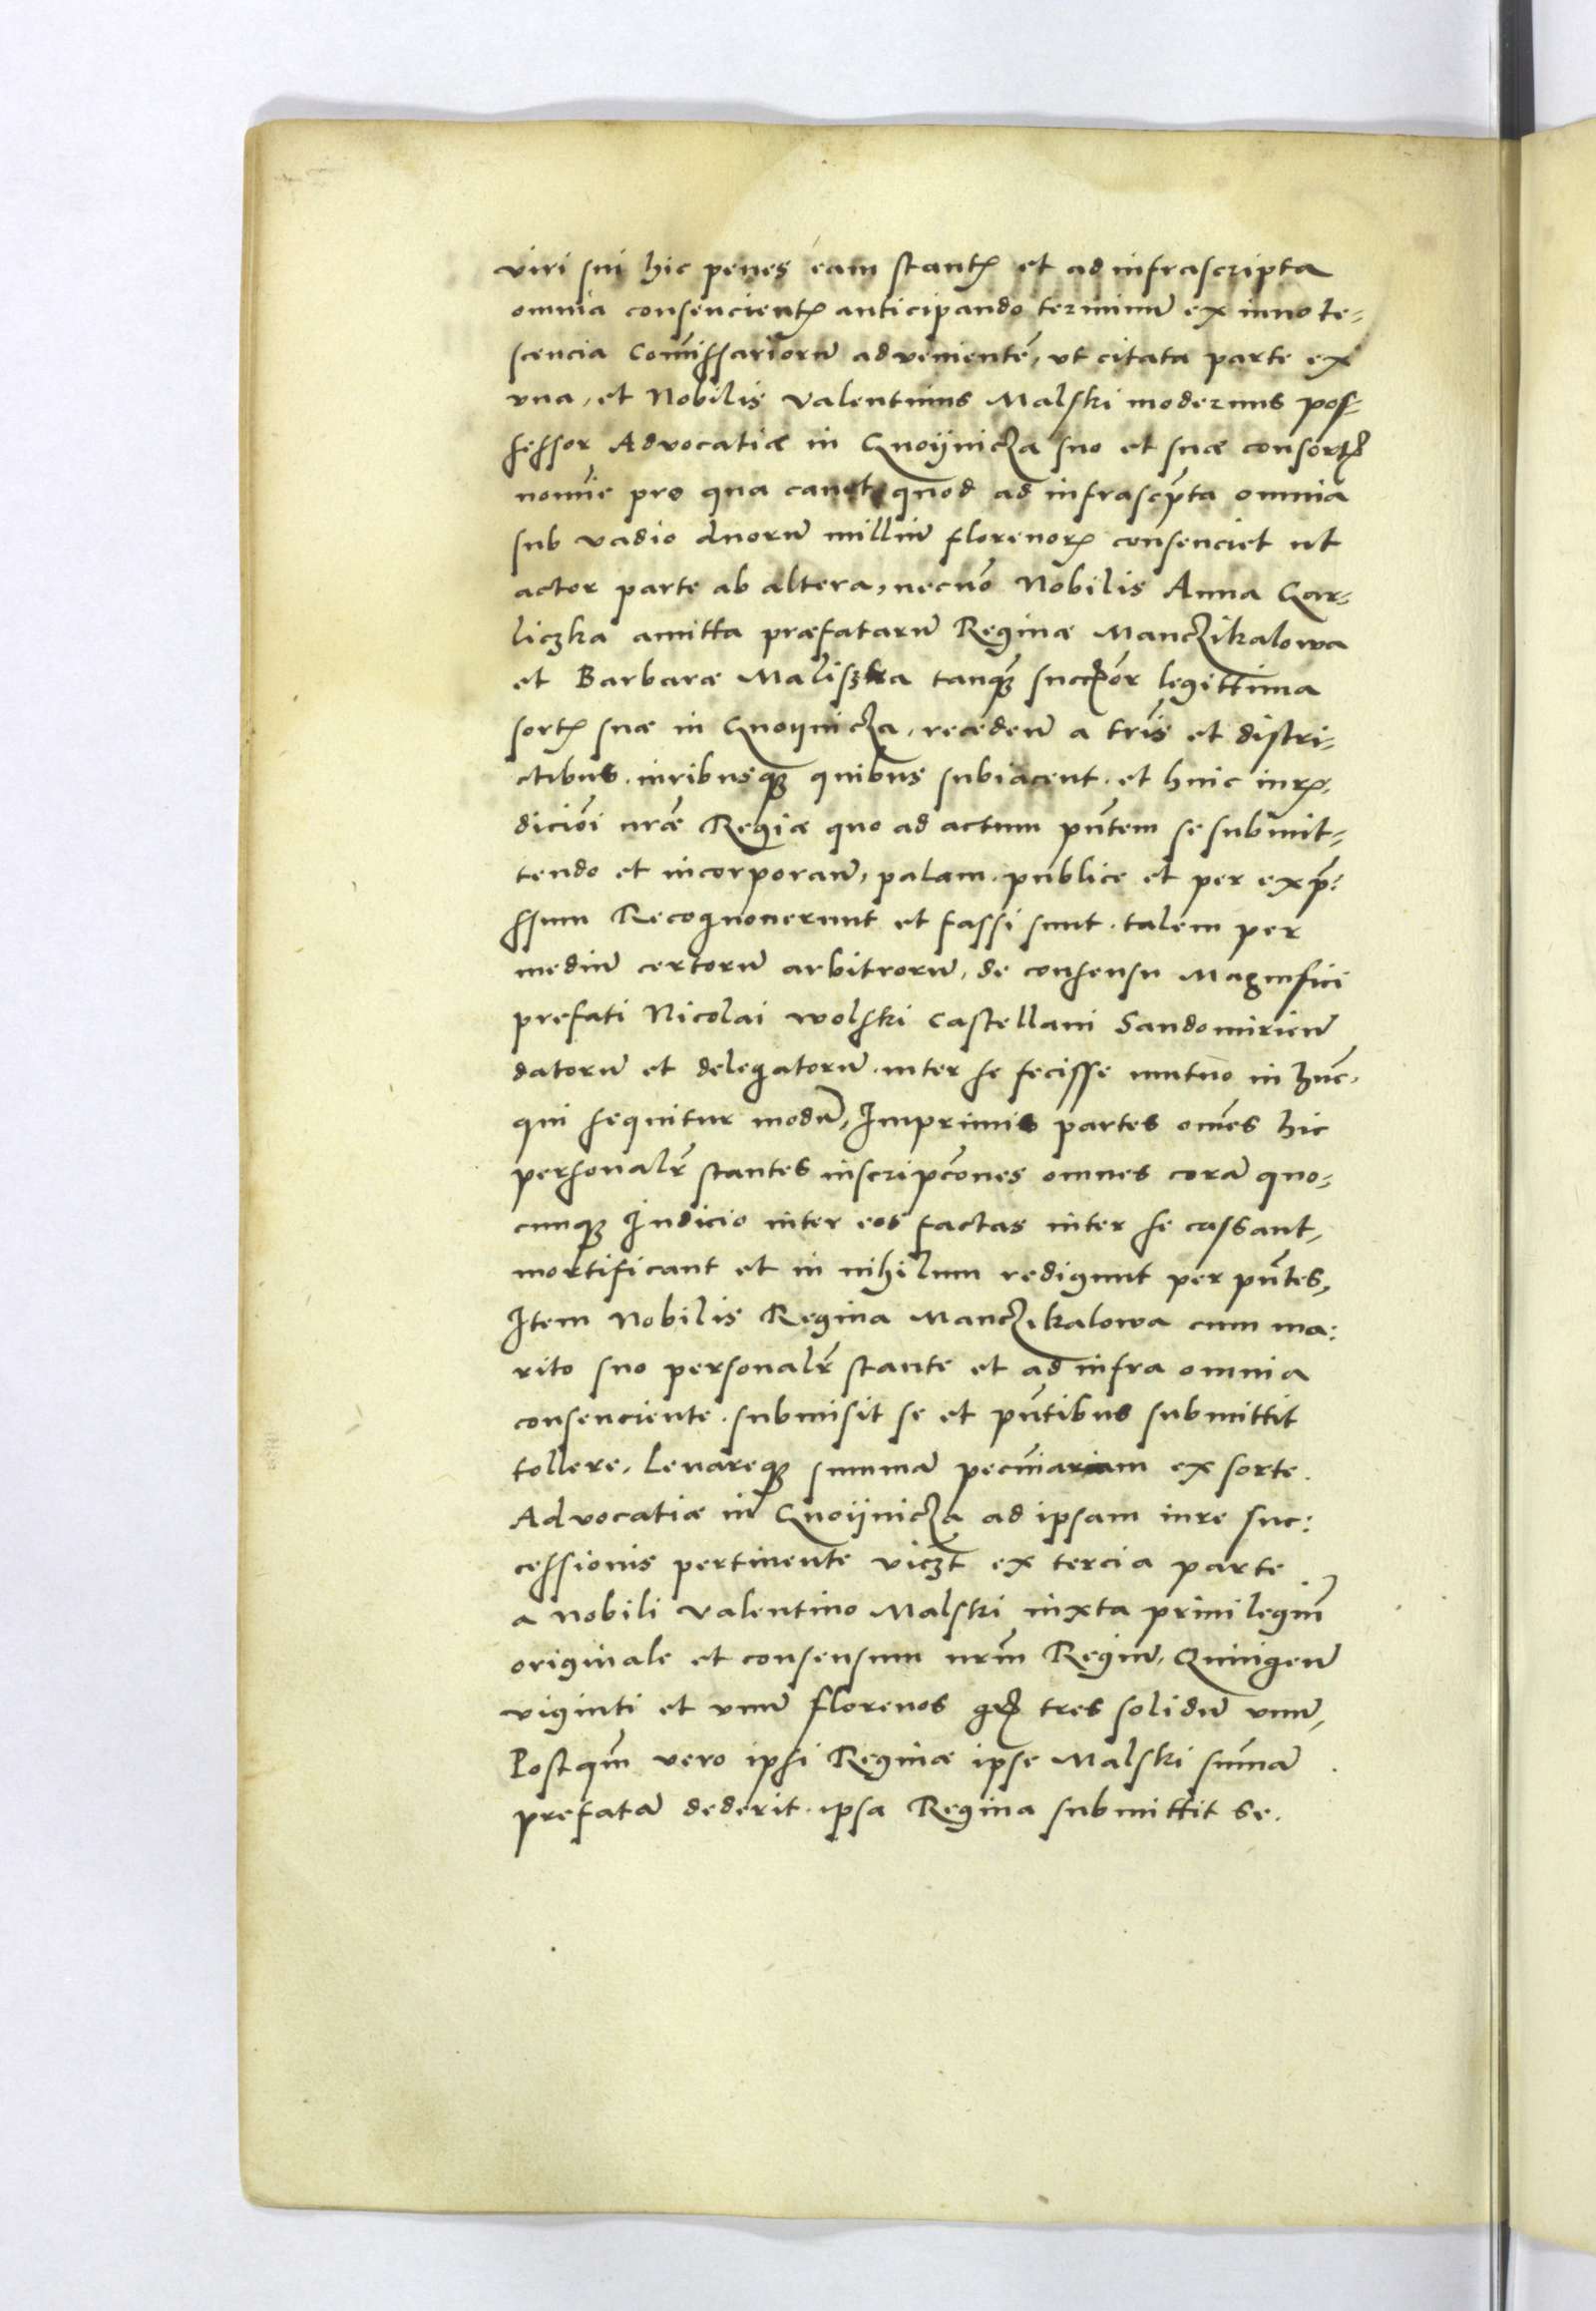 viri sui hic penes eam stantꝭ et ad infrascripta
omnia consencientꝭ anticipando terminū ex innote-
scencia Comīssariorū advenientē, ut citata parte ex
vna, et Nobilis Valentinus Malski modernus pos-
sessor Advocatiæ in Gnoijnicza suo et suæ consortꝭ
nomīe pro qua cavet quod ad infrascp̄ta omnia
sub vadio duorū milliū florenorꝝ consenciet ut
actor parte ab altera, necnō Nobilis Anna Gar-
liczka amitta præfatarū Reginæ Manczikalowa
et Barbaræ Maliszka tanqꝫ legittima
sortꝭ suæ in Gnoynicza, recedeñ a tr̄is et distri-
ctibus. iuribusqꝫ quibus subiacent. et huic iurꝭ-
dicioī nr̄æ Regiæ quo ad actum pn̄tem se submit-
tendo et incorporañ, palam. publice et per exp̄-
ssum Recognoverunt et fassi sunt. talem per
mediū certorū arbitrorū, de consensu Magnifici
prefati Nicolai wolski Castellani Sandomirieñ
datorū et delegatorū. inter se fecisse mutuo in hūc.
qui sequitur modū, Imprimis partes om̄es hic
personalr̄ stantes inscripc̄ones omnes corā quo-
cunqꝫ Iudicio inter eos factas inter se cassant,
mortificant et in nihilum redigunt per pn̄tes,
Item Nobilis Regina Manczikalowa cum ma:
rito suo personalr̄ stante et ad infra omnia
consenciente. submisit se et pn̄tibus submittit
tollere, levareqꝫ summā pecūiariam ex sorte.
Advocatiæ in Gnoijnicza ad ipsam iure suc:
cessionis pertinente viczt ex tercia parte
a Nobili Valentino Malski iuxta privilegiū
originale et consensum nrm̄ Regiū, Quingeñ
viginti et vnū florenos grꝭ tres solidū vnū,
Postqm̄ vero ipsi Reginæ ipse Malski sum̄ā
prefatā dederit. ipsa Regina submittit se.